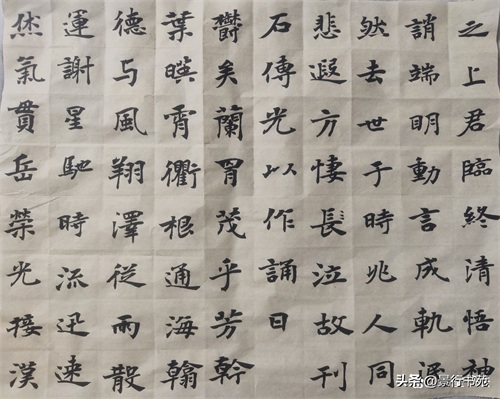 之上君臨終清悟神
誚端明動言成軌泯
然去世于時兆人同
悲遐方悽長泣故刊
石傳光以作誦曰
鬱矣蘭胄茂乎芳幹
葉暎霄衢根通海翰
德与風翔澤從雨散
運謝星馳時流迅速
烋氣貫岳榮光接漢
头条@景行书苑